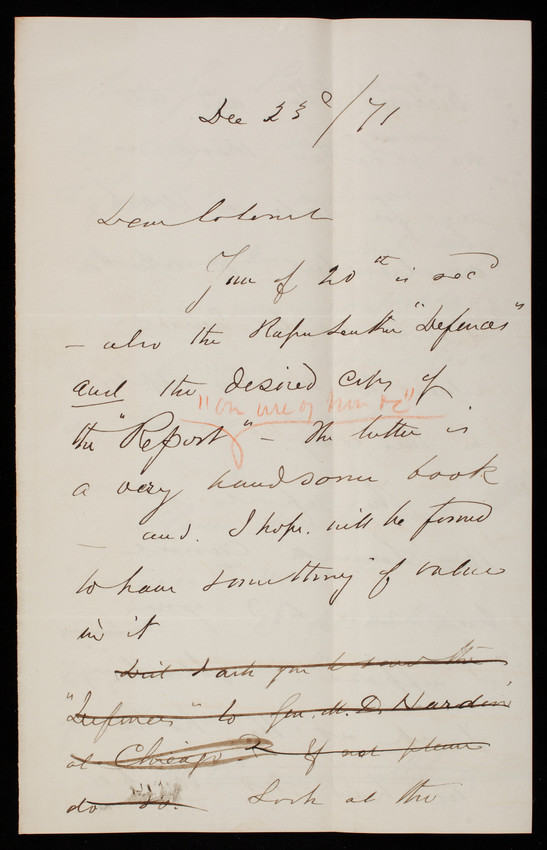 Dec 23d/71
Dear Colonel
Your of 20th is rec'd
- also the "Defences"
and the desired copy of
"on use of iron &c"
the "Report" - The latter is
a very handsome book
- and I hope will be found
to have something of value
in it
Did I ask you to send the
"Defences" to Gen. M. D. Hardin
at Chicago? If not please
do so. Look at the